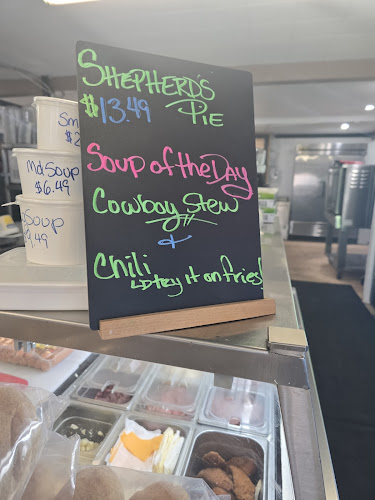 SHEPHERD'S
$13.49 PIE
Soup of the Day
Cowboy Stew
&
Chili
try it on fries!
Sm
$2
Md Soup
$6.49
Soup
49